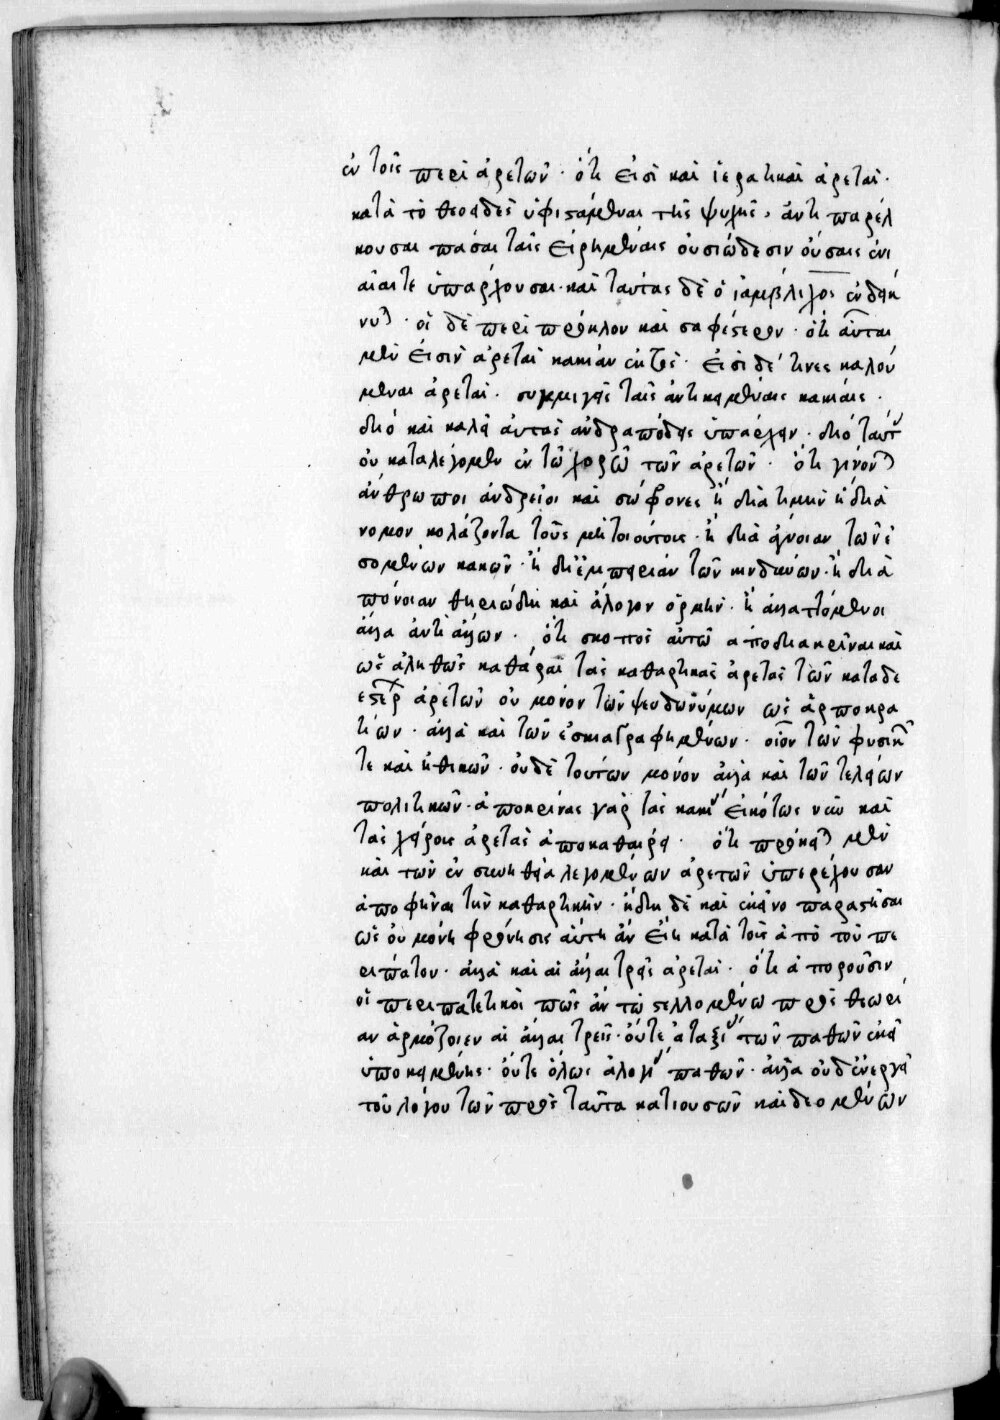 ἐν τοῖς περὶ ἀρετῶν · ὅτι εἰσὶ καὶ ἱερατικαὶ ἀρεταὶ ·
κατὰ τὸ θεοειδὲς ὑφιστάμεναι τῆς ψυχῆς , ἀντιπαρέλ
κουσαι πάσαι ταῖς εἰρημέναις οὐσιώδεσιν οὔσαις ἑνι
αῖαί τε ὑπάρχουσαι · καὶ ταύτας δὲ ὁ ἰάμβλιχος ἐνδείκ
νυται · οἱ δὲ περὶ πρόκλον καὶ σαφέστερον · ὅτι αὗται
μὲν εἰσὶν ἀρεταὶ κακιῶν ἐκτὸς · εἰσὶ δέ τινες καλού
μεναι ἀρεταὶ · συμμιγεῖς ταῖς ἀντικειμέναις κακίαις ·
διό καὶ καλεῖ αὐτὰς ἀνδραπόδεις ὑπάρχειν · διό ταύτας
οὐ καταλέγομεν ἐν τῶ χορῶ τῶν ἀρετῶν · ὅτι γίνονται
ἄνθρωποι ἀνδρεῖοι καὶ σώφρονες ἢ διὰ τιμὴν ἢ διὰ
νόμον κολάζοντα τοὺς μὴ τοιούτους · ἢ διὰ ἄγνοιαν τῶν ἐ
σομένων κακῶν · ἢ δι' ἐμπειρίαν τῶν κινδύνων · ἢ διὰ
πόνοιαν θηριώδη καὶ ἄλογον ὁρμὴν · ἢ ἀλλαττόμενοι
ἄλλα ἀντὶ ἄλλων · ὅτι σκοπὸς αὐτῶ ἀποδιακρῖναι καὶ
ὡς ἀληθῶς καθᾶραι τὰς καθαρτικὰς ἀρετὰς τῶν καταδε
εστέρων ἀρετῶν οὐ μόνον τῶν ψευδωνύμων ὡς ἁρποκρα
τίων · ἀλλὰ καὶ τῶν ἐσκιαγραφημένων · οἷον τῶν φυσικῶν
τε καὶ ἠθικῶν · οὐδὲ τούτων μόνον ἀλλὰ καὶ τῶν τελείων
πολιτικῶν · ἀποκρίνας γὰρ τὰς κακίας εἰκότως νῦν καὶ
τὰς χείρους ἀρετὰς ἀποκαθαίρει · ὅτι πρόκειται μὲν
καὶ τῶν ἐν συνηθεία λεγομένων ἀρετῶν ὑπερέχουσαν
ἀποφῆναι τὴν καθαρτικὴν · ἤδη δὲ καὶ ἐκεῖνο παραστῆσαι
ὡς οὐ μόνη φρόνησις αὕτη ἂν εἴη κατὰ τοὺς ἀπὸ τοῦ πε
ριπάτου · ἀλλὰ καὶ αἱ ἄλλαι τρεῖς ἀρεταὶ · ὅτι ἀποροῦσιν
οἱ περιπατετικοὶ πῶς ἂν τῶ στελλομένω πρὸς θεωρί
αν ἁρμόζοιεν αἱ ἄλλαι τρεῖς · οὔτε ἀταξίας τῶν παθῶν ἐκεῖ
ὑποκειμένης · οὔτε ὅλως ἀλογίας παθῶν · ἀλλὰ οὐδ' ἐνεργεί
τοῦ λόγου τῶν πρὸς ταῦτα κατιουσῶν καὶ δεομένων